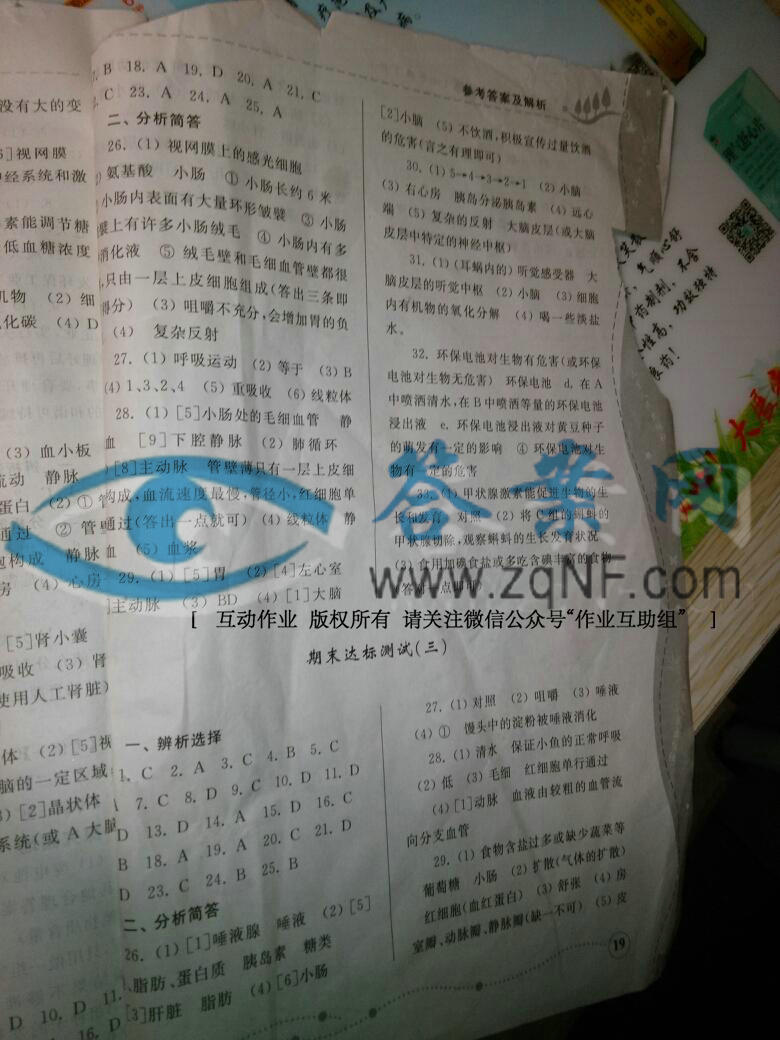 没有大的变
]视网膜
经系统和激
素能调节糖
低血糖浓度
机物 (2)细
化碳 (4)D
(3)血小板
流动 静脉
蛋白 (2)①管
通过 ②管
构成 静脉
房 (4)心房
[5]肾小囊
吸收 (3)肾
使用人工肾脏)
体 (2)[5]视
脑的一定区域
)[2]晶状体
系统(或A大脑
D 10. D 11.
16. D
B 18. A 19. D 20. A 21. C
C 23. A 24. A 25. A
二、分析简答
26. (1)视网膜上的感光细胞
氨基酸 小肠 ①小肠长约6米
小肠内表面有大量环形皱襞 ③小肠
襞上有许多小肠绒毛 ④小肠内有多
消化液 ⑤绒毛壁和毛细血管壁都很
只由一层上皮细胞组成(答出三条即
得分) (3)咀嚼不充分,会增加胃的负
(4) 复杂反射
27. (1)呼吸运动 (2)等于 (3)B
(4)1、3、2、4 (5)重吸收 (6)线粒体
28. (1)[5]小肠处的毛细血管 静
血 [9]下腔静脉 (2)肺循环
[8]主动脉 管壁薄只有一层上皮细
构成,血流速度最慢,管径小,红细胞单
通过(答出一点就可) (4)线粒体 静
血 (5)血浆
29. (1)[5]胃 (2)[4]左心室
]主动脉 (3)BD (4)[1]大脑
参考答案及解析
[2]小脑 (5)不饮酒,积极宣传过量饮酒
的危害(言之有理即可)
30. (1)5→4→3→2→1 (2)小脑
(3)右心房 胰岛分泌胰岛素 (4)远心
端 (5)复杂的反射 大脑皮层(或大脑
皮层中特定的神经中枢)
31. (1)(耳蜗内的)听觉感受器 大
脑皮层的听觉中枢 (2)小脑 (3)细胞
内有机物的氧化分解 (4)喝一些淡盐
水。
32. 环保电池对生物有危害(或环保
电池对生物无危害) 环保电池 d. 在A
中喷洒清水,在B中喷洒等量的环保电池
浸出液 e. 环保电池浸出液对黄豆种子
的萌发有一定的影响 ④环保电池对生
物有一定的危害
33. (1)甲状腺激素能促进生物的生
长和发育 对照 (2)将C组的蝌蚪的
甲状腺切除,观察蝌蚪的生长发育状况
(3)食用加碘食盐或多吃含碘丰富的食物
(答对一点即可)
答案网
www.zqNF.com
[ 互动作业 版权所有 请关注微信公众号“作业互助组” ]
期末达标测试(三)
一、辨析选择
1. C 2. A 3. C 4. B 5. C
7. C 8. D 9. C 10. D 11. D
D 13. D 14. A 15. D 16. C
B 18. A 19. A 20. C 21. D
D 23. C 24. B 25. B
二、分析简答
26. (1)[1]唾液腺 唾液 (2)[5]
脂肪、蛋白质 胰岛素 糖类
[3]肝脏 脂肪 (4)[6]小肠
27. (1)对照 (2)咀嚼 (3)唾液
(4)① 馒头中的淀粉被唾液消化
28. (1)清水 保证小鱼的正常呼吸
(2)低 (3)毛细 红细胞单行通过
(4)[1]动脉 血液由较粗的血管流
向分支血管
29. (1)食物含盐过多或缺少蔬菜等
葡萄糖 小肠 (2)扩散(气体的扩散)
红细胞(血红蛋白) (3)舒张 (4)房
室瓣、动脉瓣、静脉瓣(缺一不可) (5)皮
19